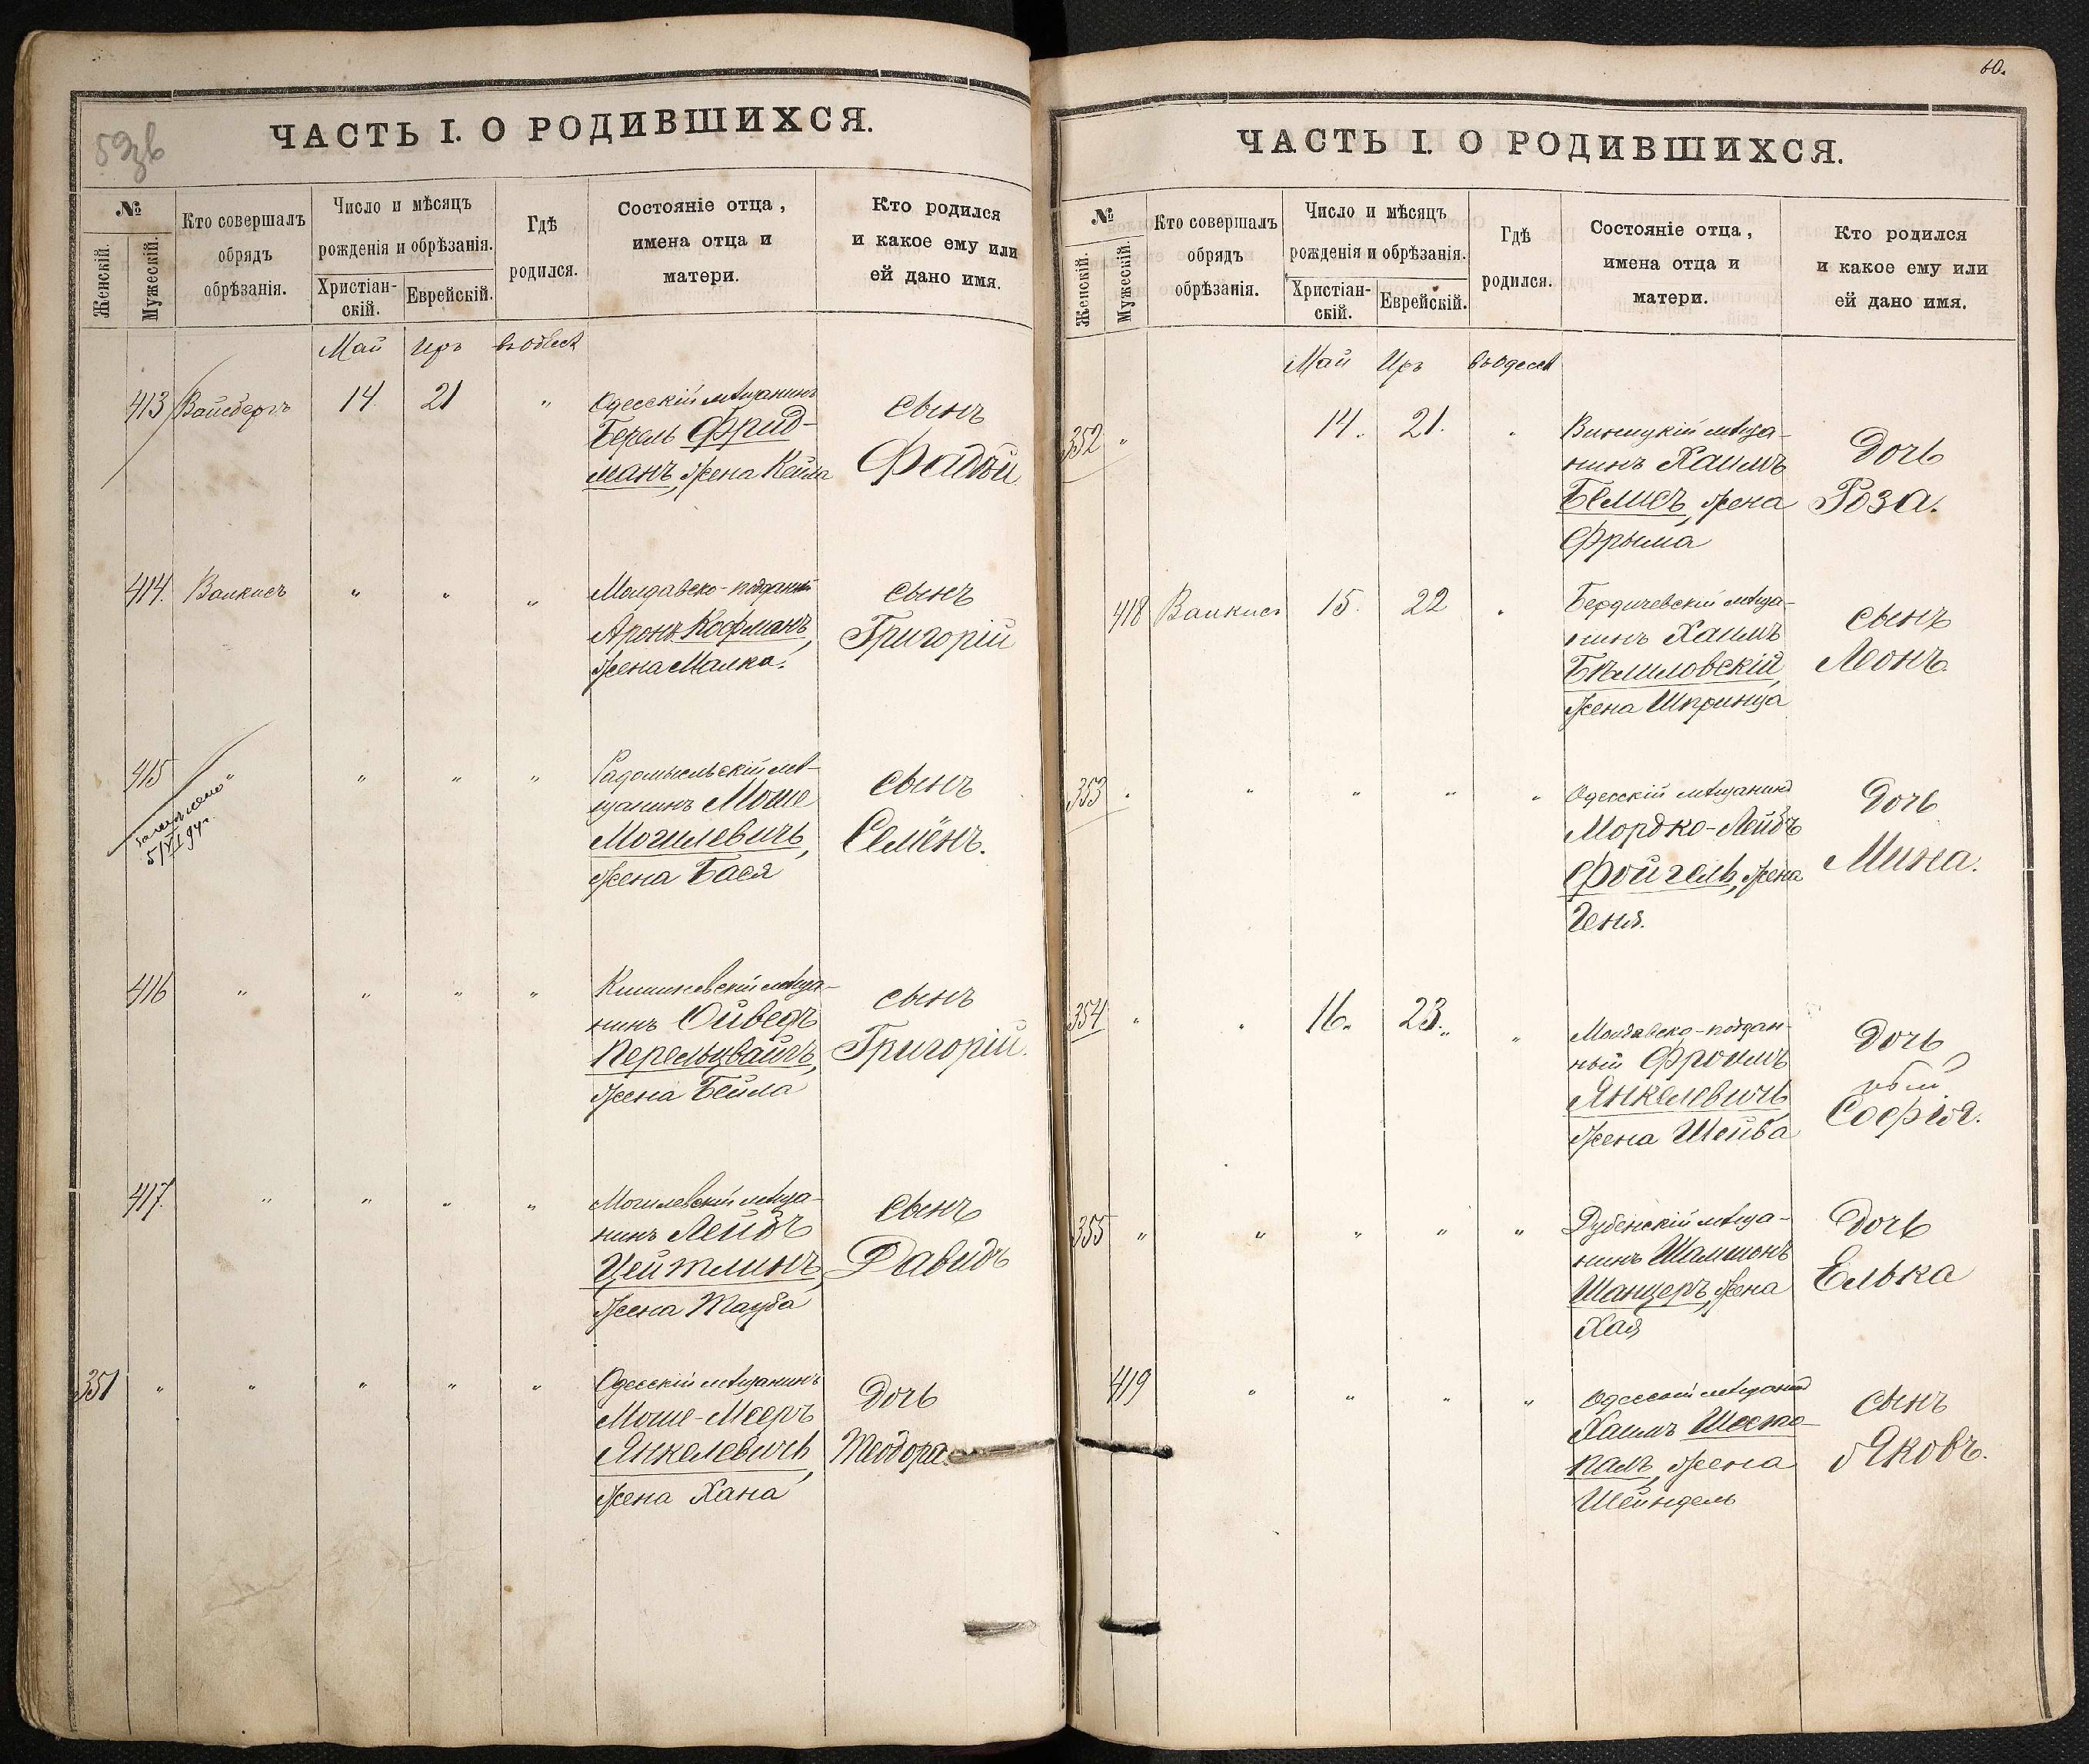 ЧАСТЬ I. О РОДИВШИХСЯ.
№
Женскій.
Мужескій.
Кто совершалъ
обрядъ
обрѣзанія.
Число и мѣсяцъ
рожденія и обрѣзанія.
Христіан-
скій.
Еврейскій.
Гдѣ
родился.
Состояніе отца,
имена отца и
матери.
Кто родился
и какое ему или
ей дано имя.
Май Иръ
413 Вайсбергъ 14 21 " Одесскій мѣщанинъ
Берль Фрид-
манъ, жена Кейла
сынъ
Фадѣй
414. Валкисъ " " " Молдавско-подданный
Аронъ Кофманъ,
жена Малка.
сынъ
Григорій
415 " " " " Радомысльскій мѣ-
щанинъ Моше
Могилевичъ,
жена Бася
сынъ
Семёнъ.
5/VI 94 г.
416 " " " " Кишиневскій мѣща-
нинъ Ойведъ
Перельцвайгъ,
жена Бейла
сынъ
Григорій.
417. " " " " Могилевскій мѣща-
нинъ Лейбъ
Цейтлинъ,
жена Тауба
сынъ
Давидъ
351 " " " " " Одесскій мѣщанинъ
Моше-Мееръ
Янкелевичъ,
жена Хана
дочь
Теодора.
60.
ЧАСТЬ I. О РОДИВШИХСЯ.
№
Женскій.
Мужескій.
Кто совершалъ
обрядъ
обрѣзанія.
Число и мѣсяцъ
рожденія и обрѣзанія.
Христіан-
скій.
Еврейскій.
Гдѣ
родился.
Состояніе отца,
имена отца и
матери.
Кто родился
и какое ему или
ей дано имя.
Май Иръ въ Одессѣ
352 " 14. 21. " Винницкій мѣща-
нинъ Хаимъ
Бемисъ, жена
Фрыма
дочь
Роза.
418 Валкисъ 15. 22 " Бердичевскій мѣща-
нинъ Хаимъ
Бѣлиловскій,
жена Шпринца
сынъ
Леонъ.
353 " " " " " Одесскій мѣщанинъ
Мордко-Лейбъ
Фойгель, жена
Геня.
дочь
Мина.
354 " " 16. 23. " Молдавско-поддан-
ный Фроимъ
Янкелевичъ
жена Шейва
дочь
Софія.
355 " " " " " Дубенскій мѣща-
нинъ Шамшонъ
Шанцеръ, жена
Хая
дочь
Елька
419 " " " " Одесскій мѣщанинъ
Хаимъ Шесто-
палъ, жена
Шейндель
сынъ
Яковъ.